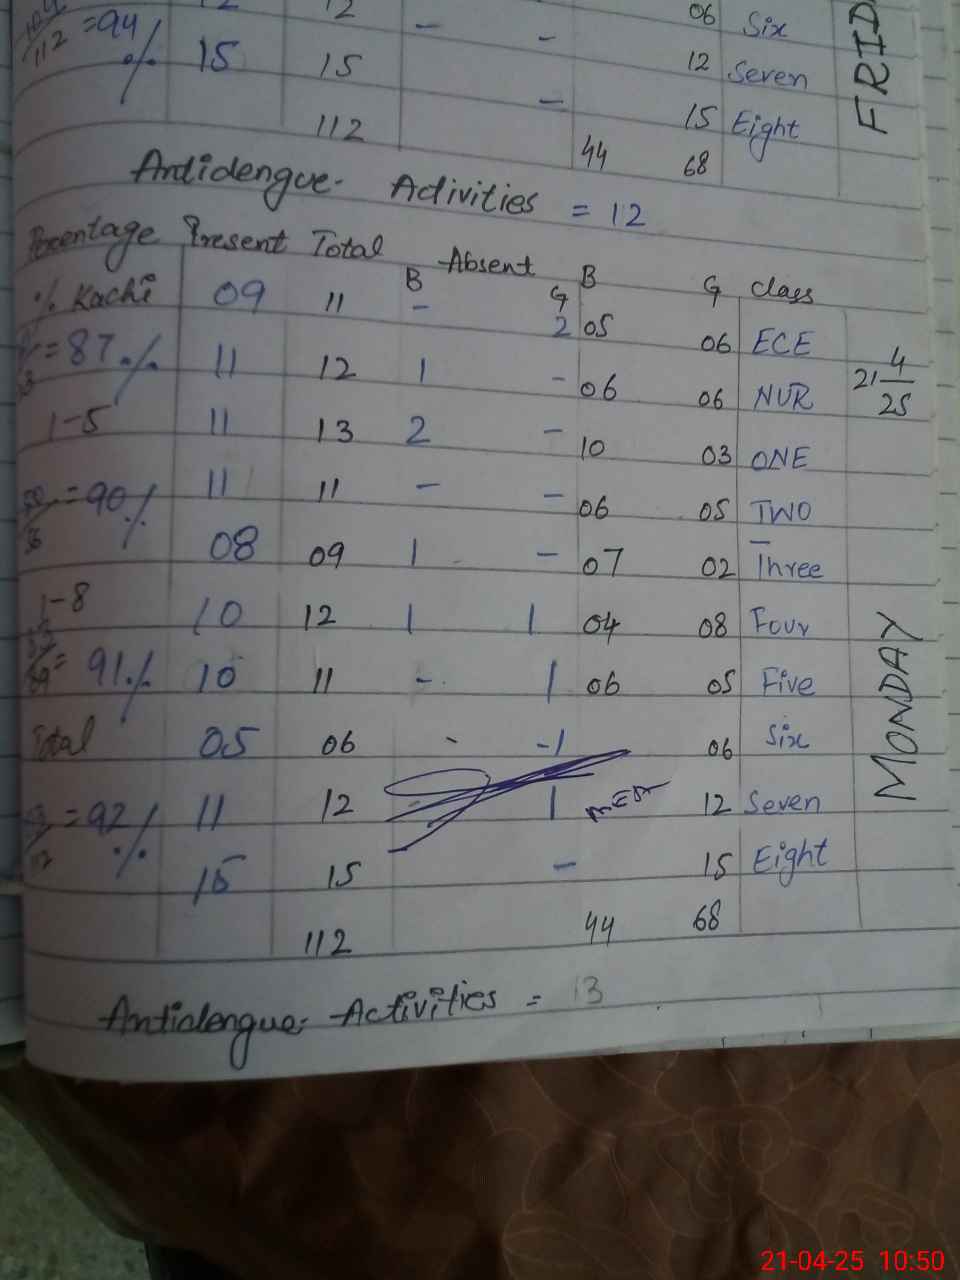 12 06 Six
112 =94 % 15 15 - - 12 Seven
- 15 Eight
112 44 68
FRID
Antidengue. Activities = 12
Percentage Present Total Absent B G B G class
% Kachi 09 11 - 2 05 06 ECE
=87 % 11 12 1 - 06 06 NUR
21 4/25
1-5 11 13 2 - 10 03 ONE
=90 % 11 11 - - 06 05 TWO
56 08 09 1 - 07 02 Three
1-8 10 12 1 1 04 08 Four
= 91 % 10 11 - 1 06 05 Five
Total 05 06 - -1 06 Six
=92 % 11 12 - 1 12 Seven
15 15 - 15 Eight
112 44 68
MONDAY
Antidengue. Activities = 13
21-04-25 10:50